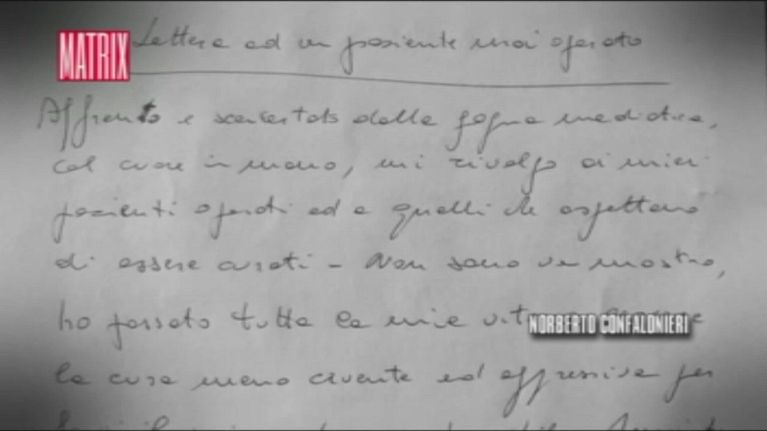 MATRIX
Lettera ad un paziente mai operato
Affranto e sconcertato dalla gogna mediatica,
col cuore in mano, mi rivolgo ai miei
pazienti operati ed a quelli che aspettano
di essere curati - Non sono un mostro,
ho passato tutta la mia vita
NORBERTO CONFALONIERI
la cura meno cruente ed aggressiva per